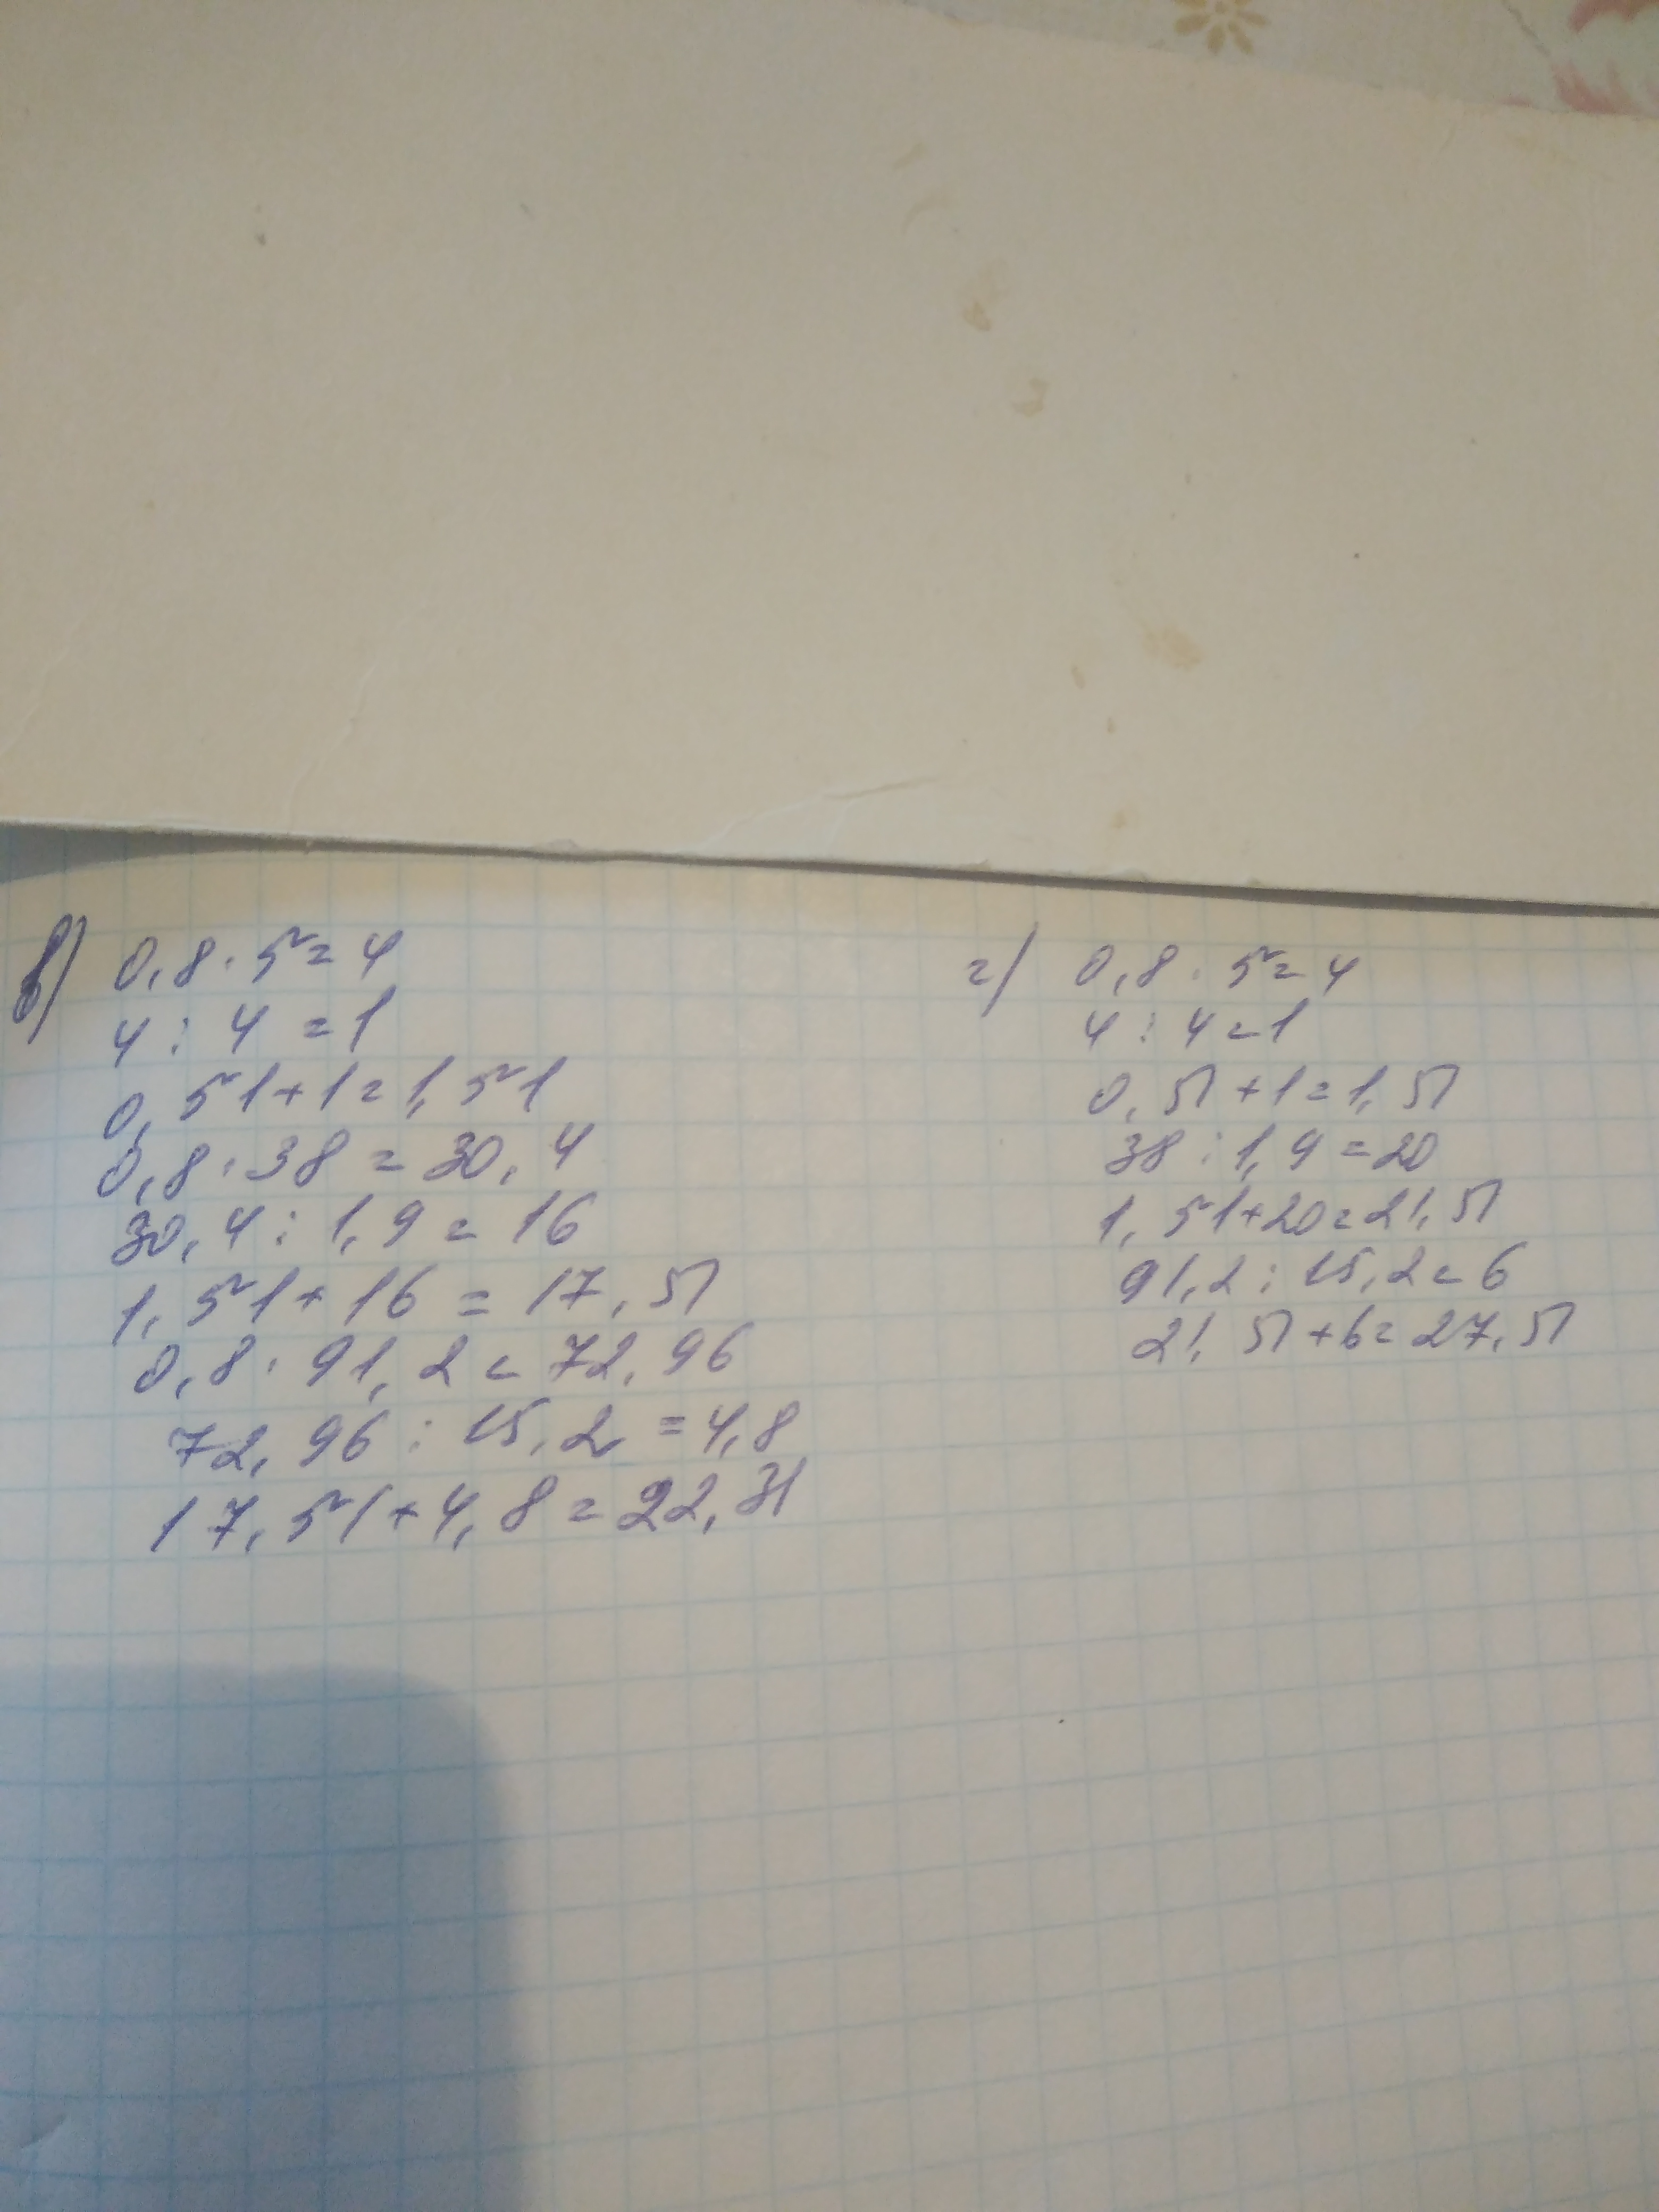 в) 0,8 · 5 = 4
4 : 4 = 1
0,51 + 1 = 1,51
0,8 · 38 = 30,4
30,4 : 1,9 = 16
1,51 + 16 = 17,51
0,8 · 91,2 = 72,96
72,96 : 15,2 = 4,8
17,51 + 4,8 = 22,31
г) 0,8 · 5 = 4
4 : 4 = 1
0,51 + 1 = 1,51
38 : 1,9 = 20
1,51 + 20 = 21,51
91,2 : 15,2 = 6
21,51 + 6 = 27,51